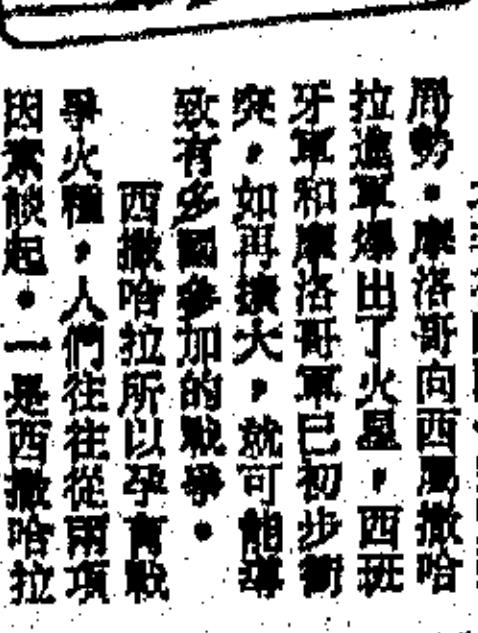 局勢。摩洛哥向西屬撒哈
拉進軍爆出了火星，西班
牙軍和摩洛哥軍已初步衝
突，如再擴大，就可能導
致有多國參加的戰爭。
西撒哈拉所以孕育戰
爭火種，人們往往從兩項
因素談起。一是西撒哈拉